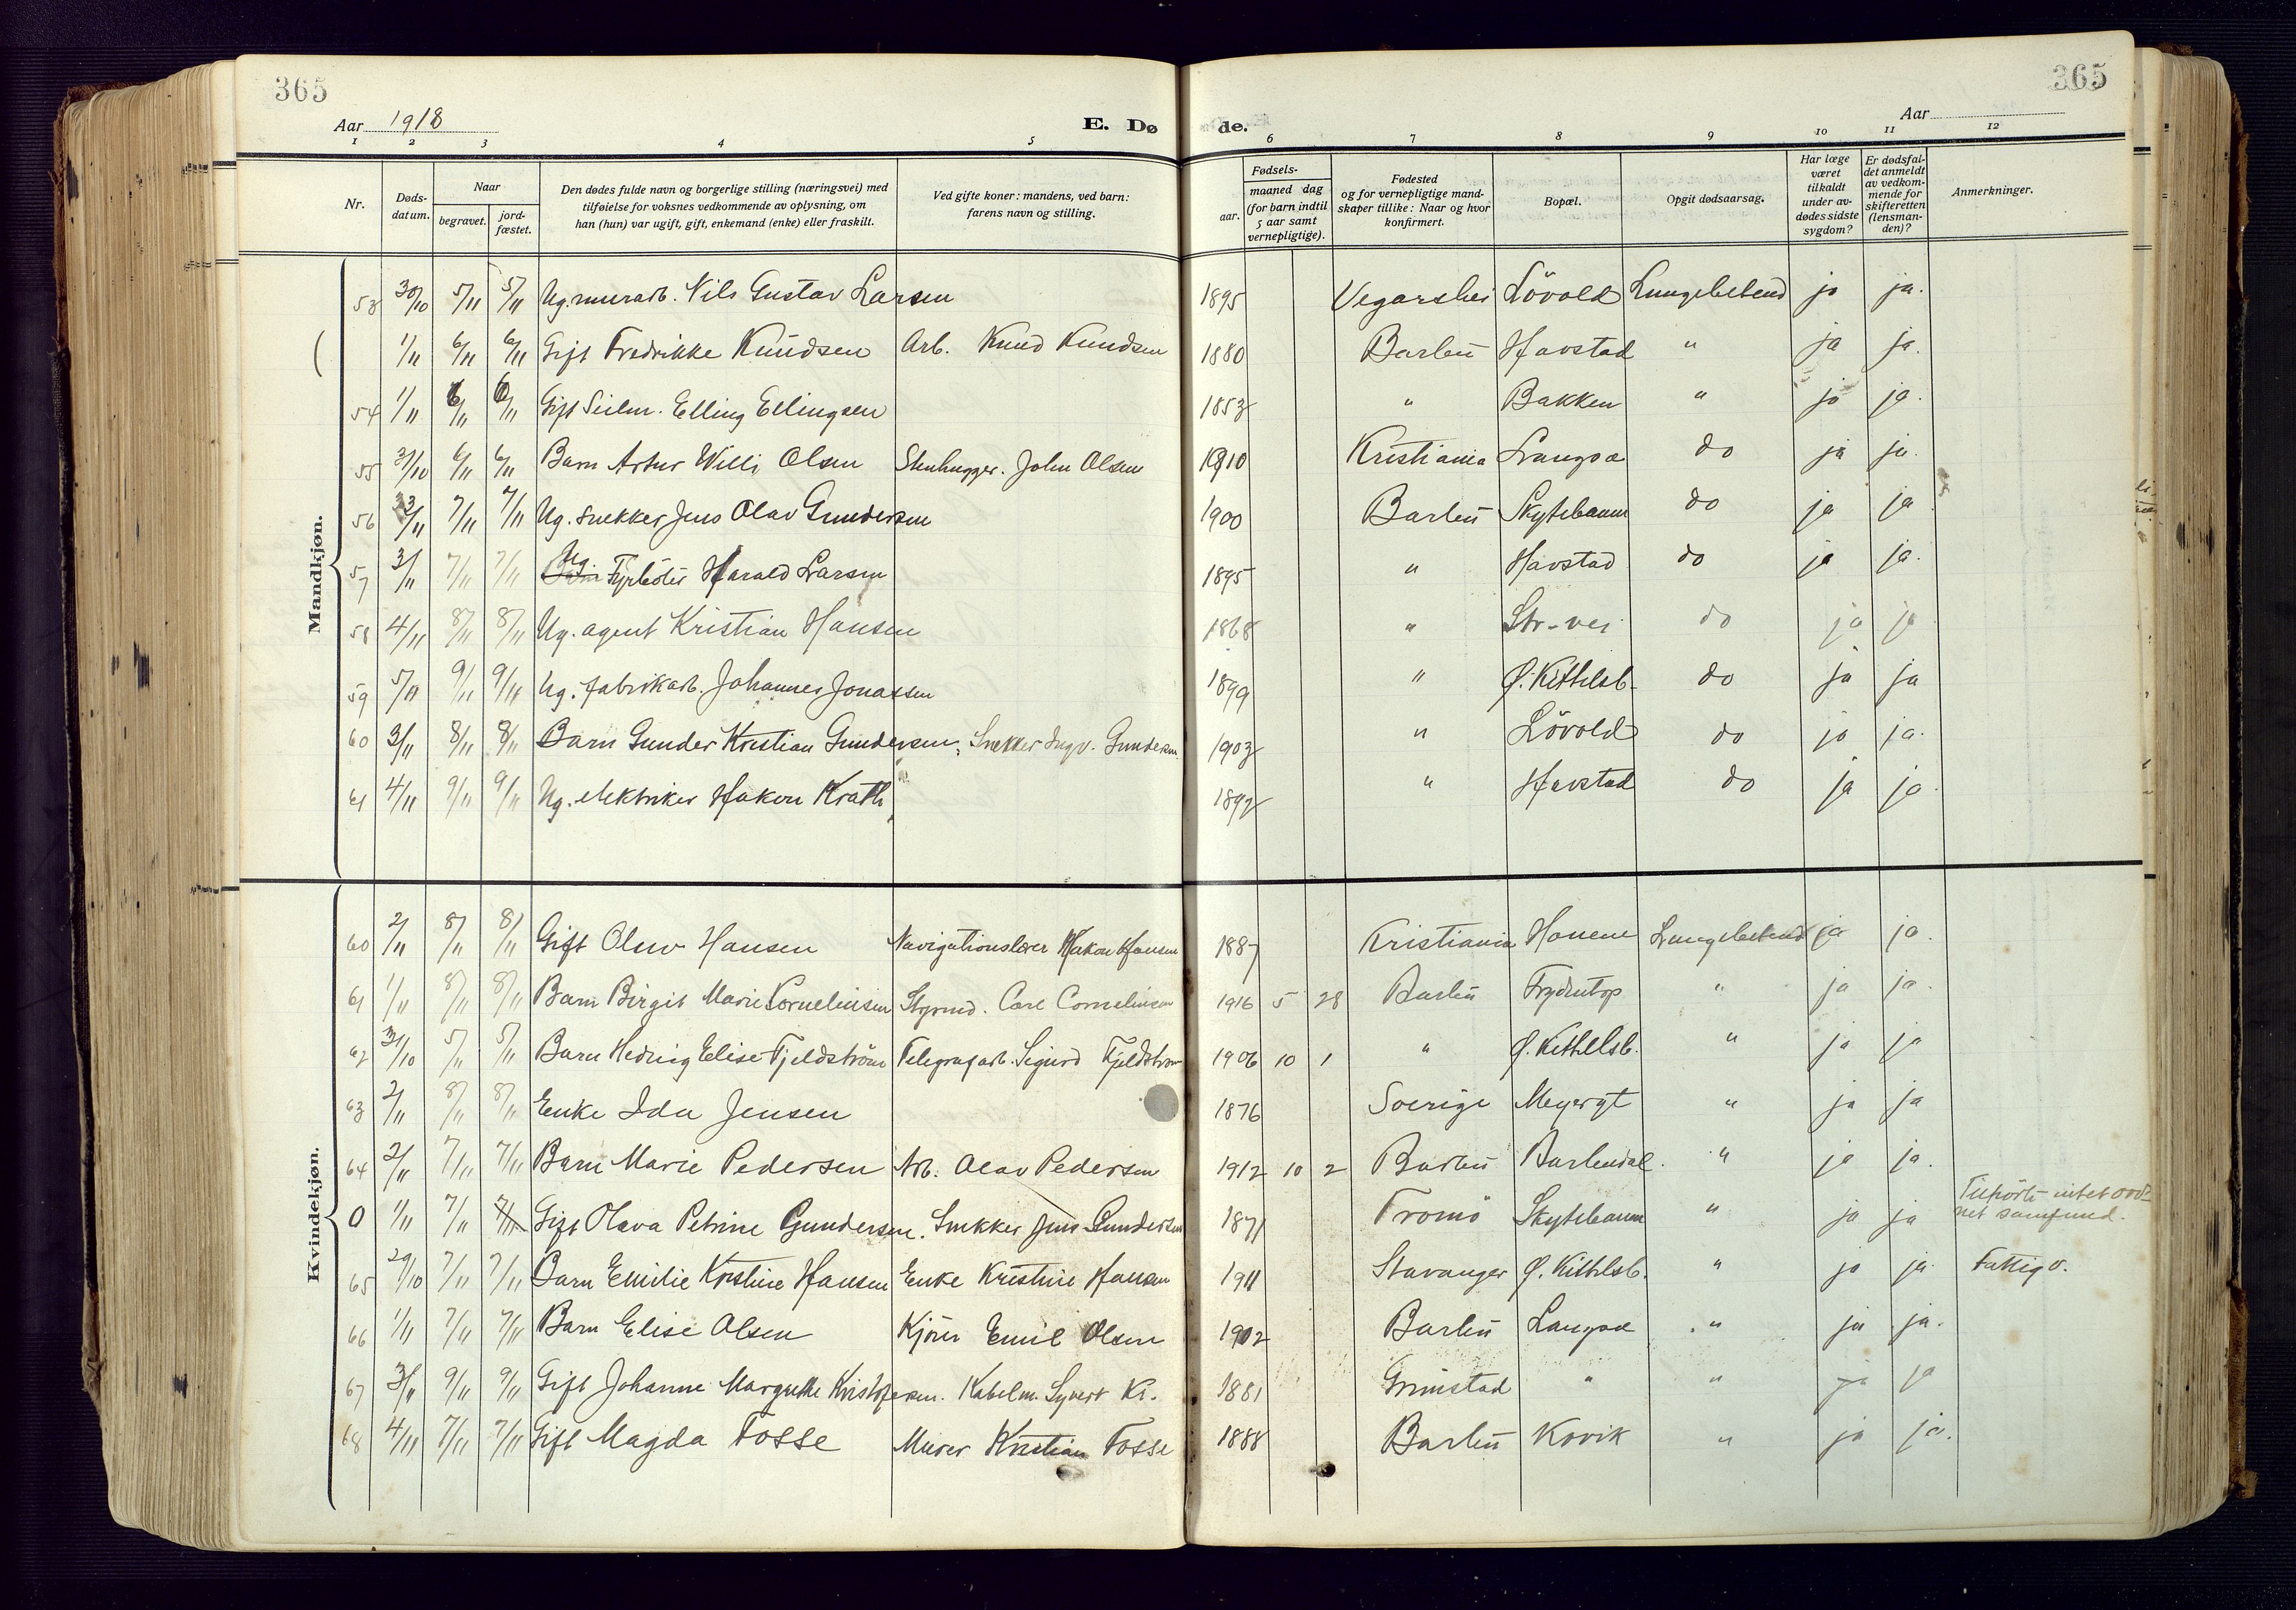 365
365
Aar 1918
E. Dø
de.
Aar
1 2 3 4 5 6 7 8 9 10 11 12
Nr.
Døds-
datum.
Naar
begravet.
jord-
fæstet.
Den dødes fulde navn og borgerlige stilling (næringsvei) med
tilføielse for voksnes vedkommende av oplysning, om
han (hun) var ugift, gift, enkemand (enke) eller fraskilt.
Ved gifte koner: mandens, ved barn:
farens navn og stilling.
Fødsels-
aar.
maaned dag
(for barn indtil
5 aar samt
vernepligtige).
Fødested
og for vernepligtige mand-
skaper tillike: Naar og hvor
konfirmert.
Bopæl.
Opgit dødsaarsag.
Har læge
været
tilkaldt
under av-
dødes sidste
sygdom?
Er dødsfal-
det anmeldt
av vedkom-
mende for
skifteretten
(lensman-
den)?
Anmerkninger.
Mandkjøn.
53 30/10 5/11 5/11 Ug. murarb. Nils Gustav Larsen 1895 Vegarshei Lövold Lungebetend ja ja.
1/11 6/11 6/11 Gift Fredrikke Knudsen Arb. Knud Knudsen 1880 Barbu Havstad " ja ja.
54 1/11 6/11 6/11 Gift Seilm. Elling Ellingsen 1853 " Bakken " ja ja.
55 31/10 6/11 6/11 Barn Artur Willi Olsen Stenhugger. John Olsen 1910 Kristiania Langsæ do ja ja.
56 3/11 7/11 7/11 Ug. snekker Jens Olav Gundersen 1900 Barbu Skytebaum do ja ja
57 3/11 7/11 7/11 Ug. Fyrböter Harald Larsen 1895 " Havstad do ja ja.
58 4/11 8/11 8/11 Ug. agent Kristian Hansen 1868 " Str-vei do ja ja
59 5/11 9/11 9/11 Ug. fabrikarb. Johannes Jonassen 1899 " Ø. Kittelsb. do ja ja
60 3/11 8/11 8/11 Barn Gunder Kristian Gundersen, Snekker Ingv. Gundersen 1903 " Lövold do ja ja.
61 4/11 9/11 9/11 Ug. elektriker Hakon Krath 1892 " Havstad do ja ja.
Kvindekjøn.
60 2/11 8/11 8/11 Gift Oluv Hansen Navigationslærer Hakon Hansen 1887 Kristiania Hauene Lungebetend ja ja.
61 1/11 8/11 8/11 Barn Birgit Marie Corneliusen Styrmd. Carl Corneliusen 1916 5 28 Barbu Frydentop " ja ja.
62 31/10 5/11 5/11 Barn Hedvig Elise Fjeldström Telegrafarb. Sigurd Fjeldström 1906 10 1 " Ø. Kittelsb. " ja ja
63 2/11 8/11 8/11 Enke Ida Jensen 1876 Sverige Meyergt " ja ja
64 2/11 7/11 7/11 Barn Marie Pedersen Arb. Olav Pedersen 1912 10 2 Barbu Barbudal. " ja ja.
0 1/11 7/11 7/11 Gift Olava Petrine Gundersen. Snekker Jens Gundersen 1871 Tromö Skytebaum " ja ja Tilhörte intet ord-
net samfund.
65 29/10 7/11 7/11 Barn Emilie Kristine Hansen Enke Kristine Hansen 1911 Stavanger Ø. Kittelsb. " ja ja. Fattigv.
66 1/11 7/11 7/11 Barn Elise Olsen Kjörer Emil Olsen 1902 Barbu Langsæ " ja ja.
67 3/11 9/11 9/11 Gift Johanne Margrethe Kristofersen. Kabelm. Syvert Kr. 1881 Grimstad " " ja ja
68 4/11 7/11 7/11 Gift Magda Fosse Murer Kristian Fosse 1888 Barbu Kovik " ja ja.